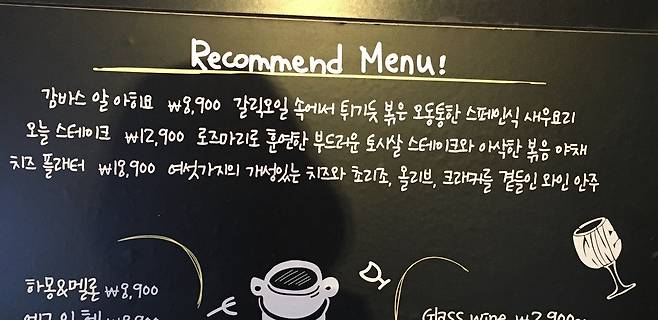 Recommend Menu!
감바스 알 아히요 ₩8,900 갈릭오일 속에서 튀기듯 볶은 오동통한 스페인식 새우요리
오늘 스테이크 ₩12,900 로즈마리로 훈연한 부드러운 토시살 스테이크와 아삭한 볶음 야채
치즈 플래터 ₩18,900 여섯가지의 개성있는 치즈와 초리조, 올리브, 크래커를 곁들인 와인 안주
하몽&멜론 ₩8,900
Glass wine ₩2,900